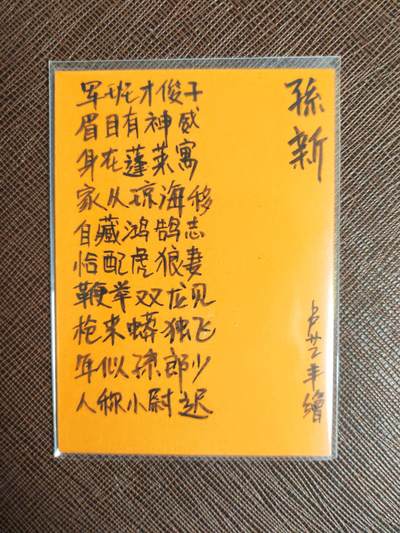 孫新
军班才俊子
眉目有神威
身在蓬莱寓
家从琼海移
自藏鸿鹄志
恰配虎狼妻
鞭举双龙见
枪来蟒独飞
年似孫郎少
人称小尉迟
卢艺丰繪